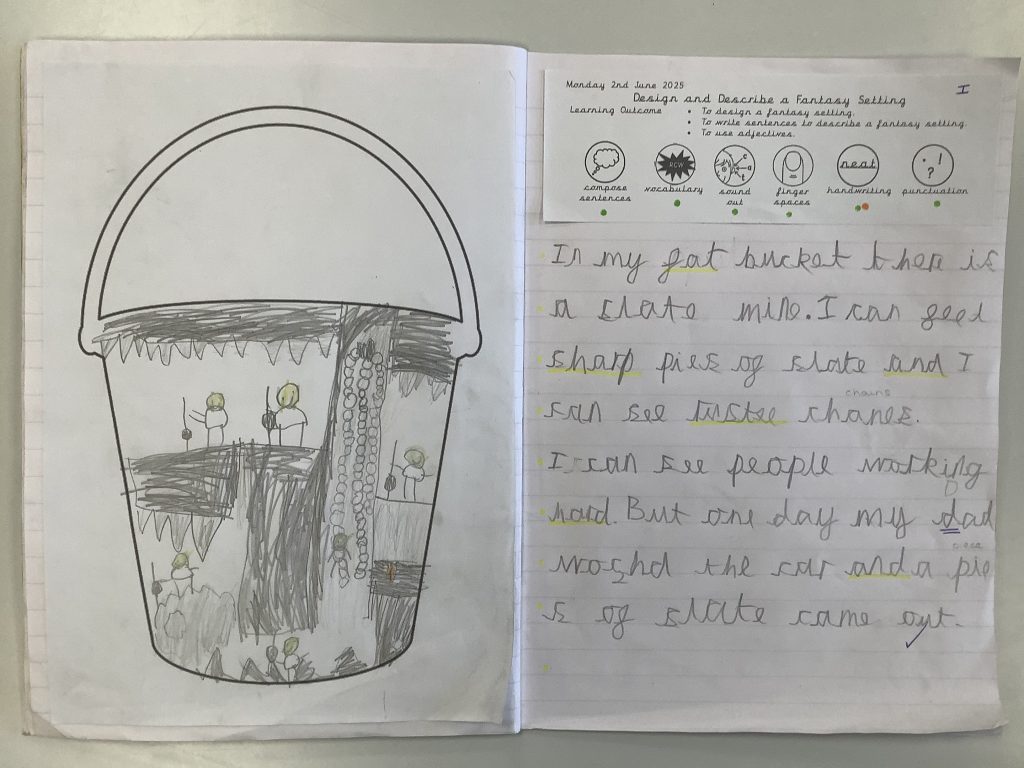 Monday 2nd June 2025
I
Design and Describe a Fantasy Setting
Learning Outcome
• To design a fantasy setting.
• To write sentences to describe a fantasy setting.
• To use adjectives.
compose sentences
WOW
vocabulary
sound out
finger spaces
neat
handwriting
. , ! ?
punctuation
In my fat bucket there is
a slate mine. I can feel
sharp pies of slate and I
chains
can see rustee chanes.
I can see people working
hard. But one day my dad
D
piece
woshd the car and a pie
s of slate came out.